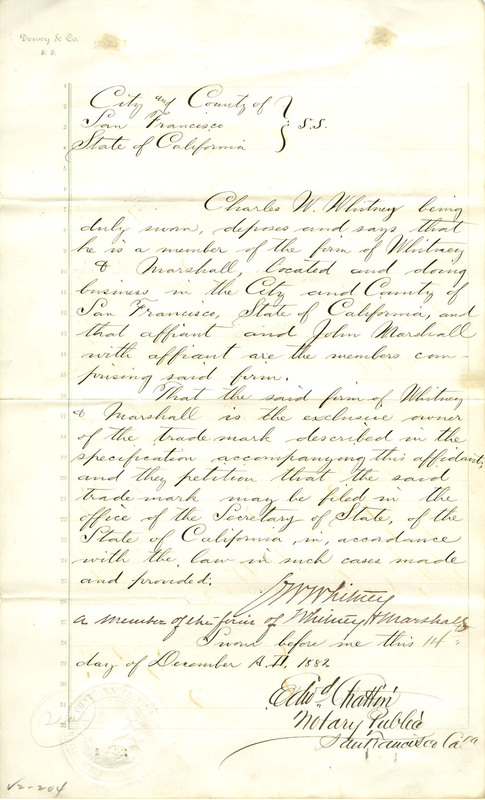 Dewey & Co.
City and County of
San Francisco } S.S.
State of California
Charles W. Whitney being
duly sworn, deposes and says that
he is a member of the firm of Whitney
& Marshall, located and doing
business in the City and County of
San Francisco, State of California, and
that affiant and John Marshall
with affiant are the members com-
prising said firm.
That the said firm of Whitney
& Marshall is the exclusive owner
of the trade mark described in the
specification accompanying this affidavit,
and they petition that the said
trade mark may be filed in the
office of the Secretary of State, of the
State of California, in, accordance
with the law in such cases made
and provided.
CW Whitney
a member of the firm of Whitney & Marshall
Sworn before me this 14
day of December A.D. 1882
Edwd Chattin
Notary Public
San Francisco Ca
V2-204